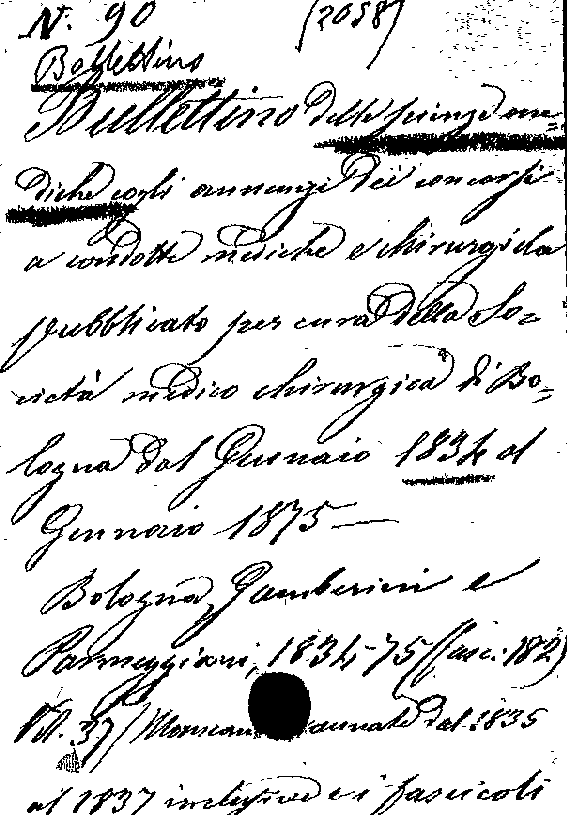 N. 90 (2058)
Bollettino
Bullettino delle scienze me=
diche cogli annunzi dei concorsi
a condotte mediche e chirurgiche
pubblicato per cura della So=
cietà medico chirurgica di Bo=
logna dal Gennaio 1834 al
Gennaio 1875 —
Bologna, Gamberini e
Parmeggiani, 1834-75 (fasc. 182)
Vol. 37) Mancano annate dal 1835
al 1837 inclusive e i fascicoli